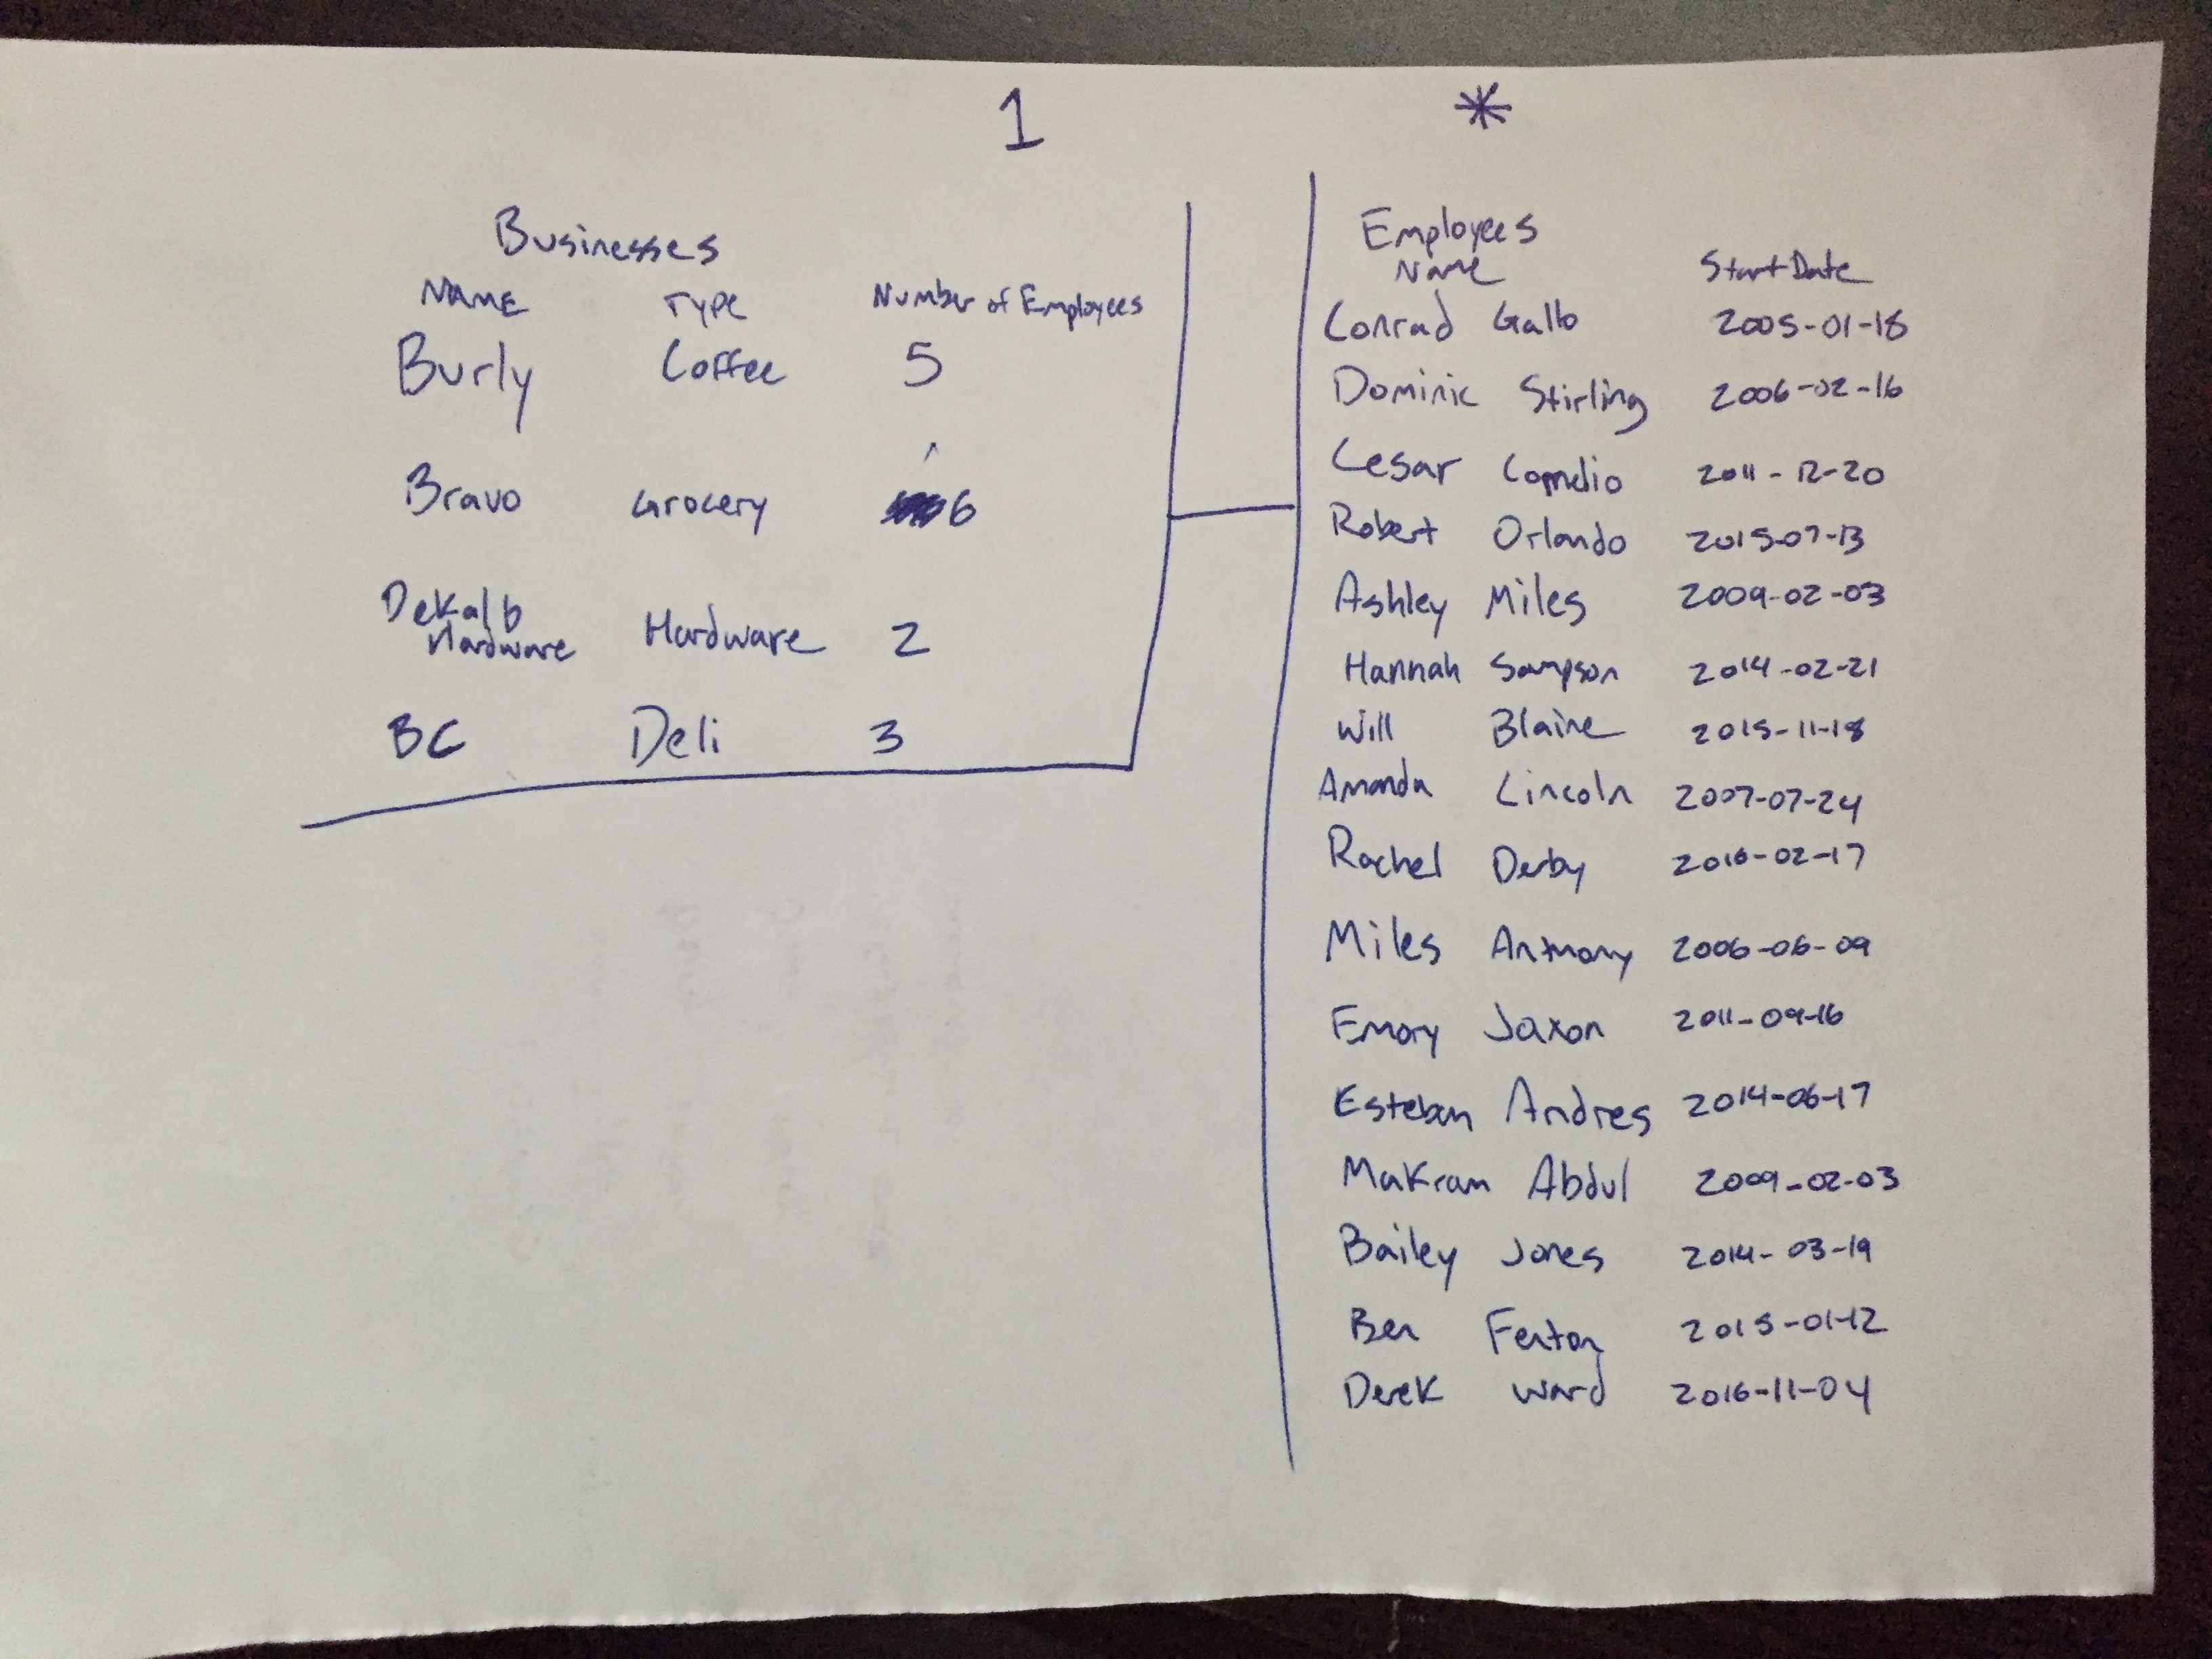 1
Businesses
Name Type Number of Employees
Burly Coffee 5
Bravo Grocery 6
Dekalb Hardware Hardware 2
BC Deli 3
*
Employees
Name Start Date
Conrad Gallo 2005-01-18
Dominic Stirling 2006-02-16
Cesar 2011-12-20
Robert Orlando 2015-07-13
Ashley Miles 2009-02-03
Hannah Sampson 2014-02-21
Will Blaine 2015-11-18
Amanda Lincoln 2007-07-24
Rachel Derby 2016-02-17
Miles Anthony 2006-06-09
Emory Jaxon 2011-09-16
Esteban Andres 2014-06-17
Makram Abdul 2009-02-03
Bailey Jones 2014-03-19
Ben Fenton 2015-01-12
Derek Ward 2016-11-04